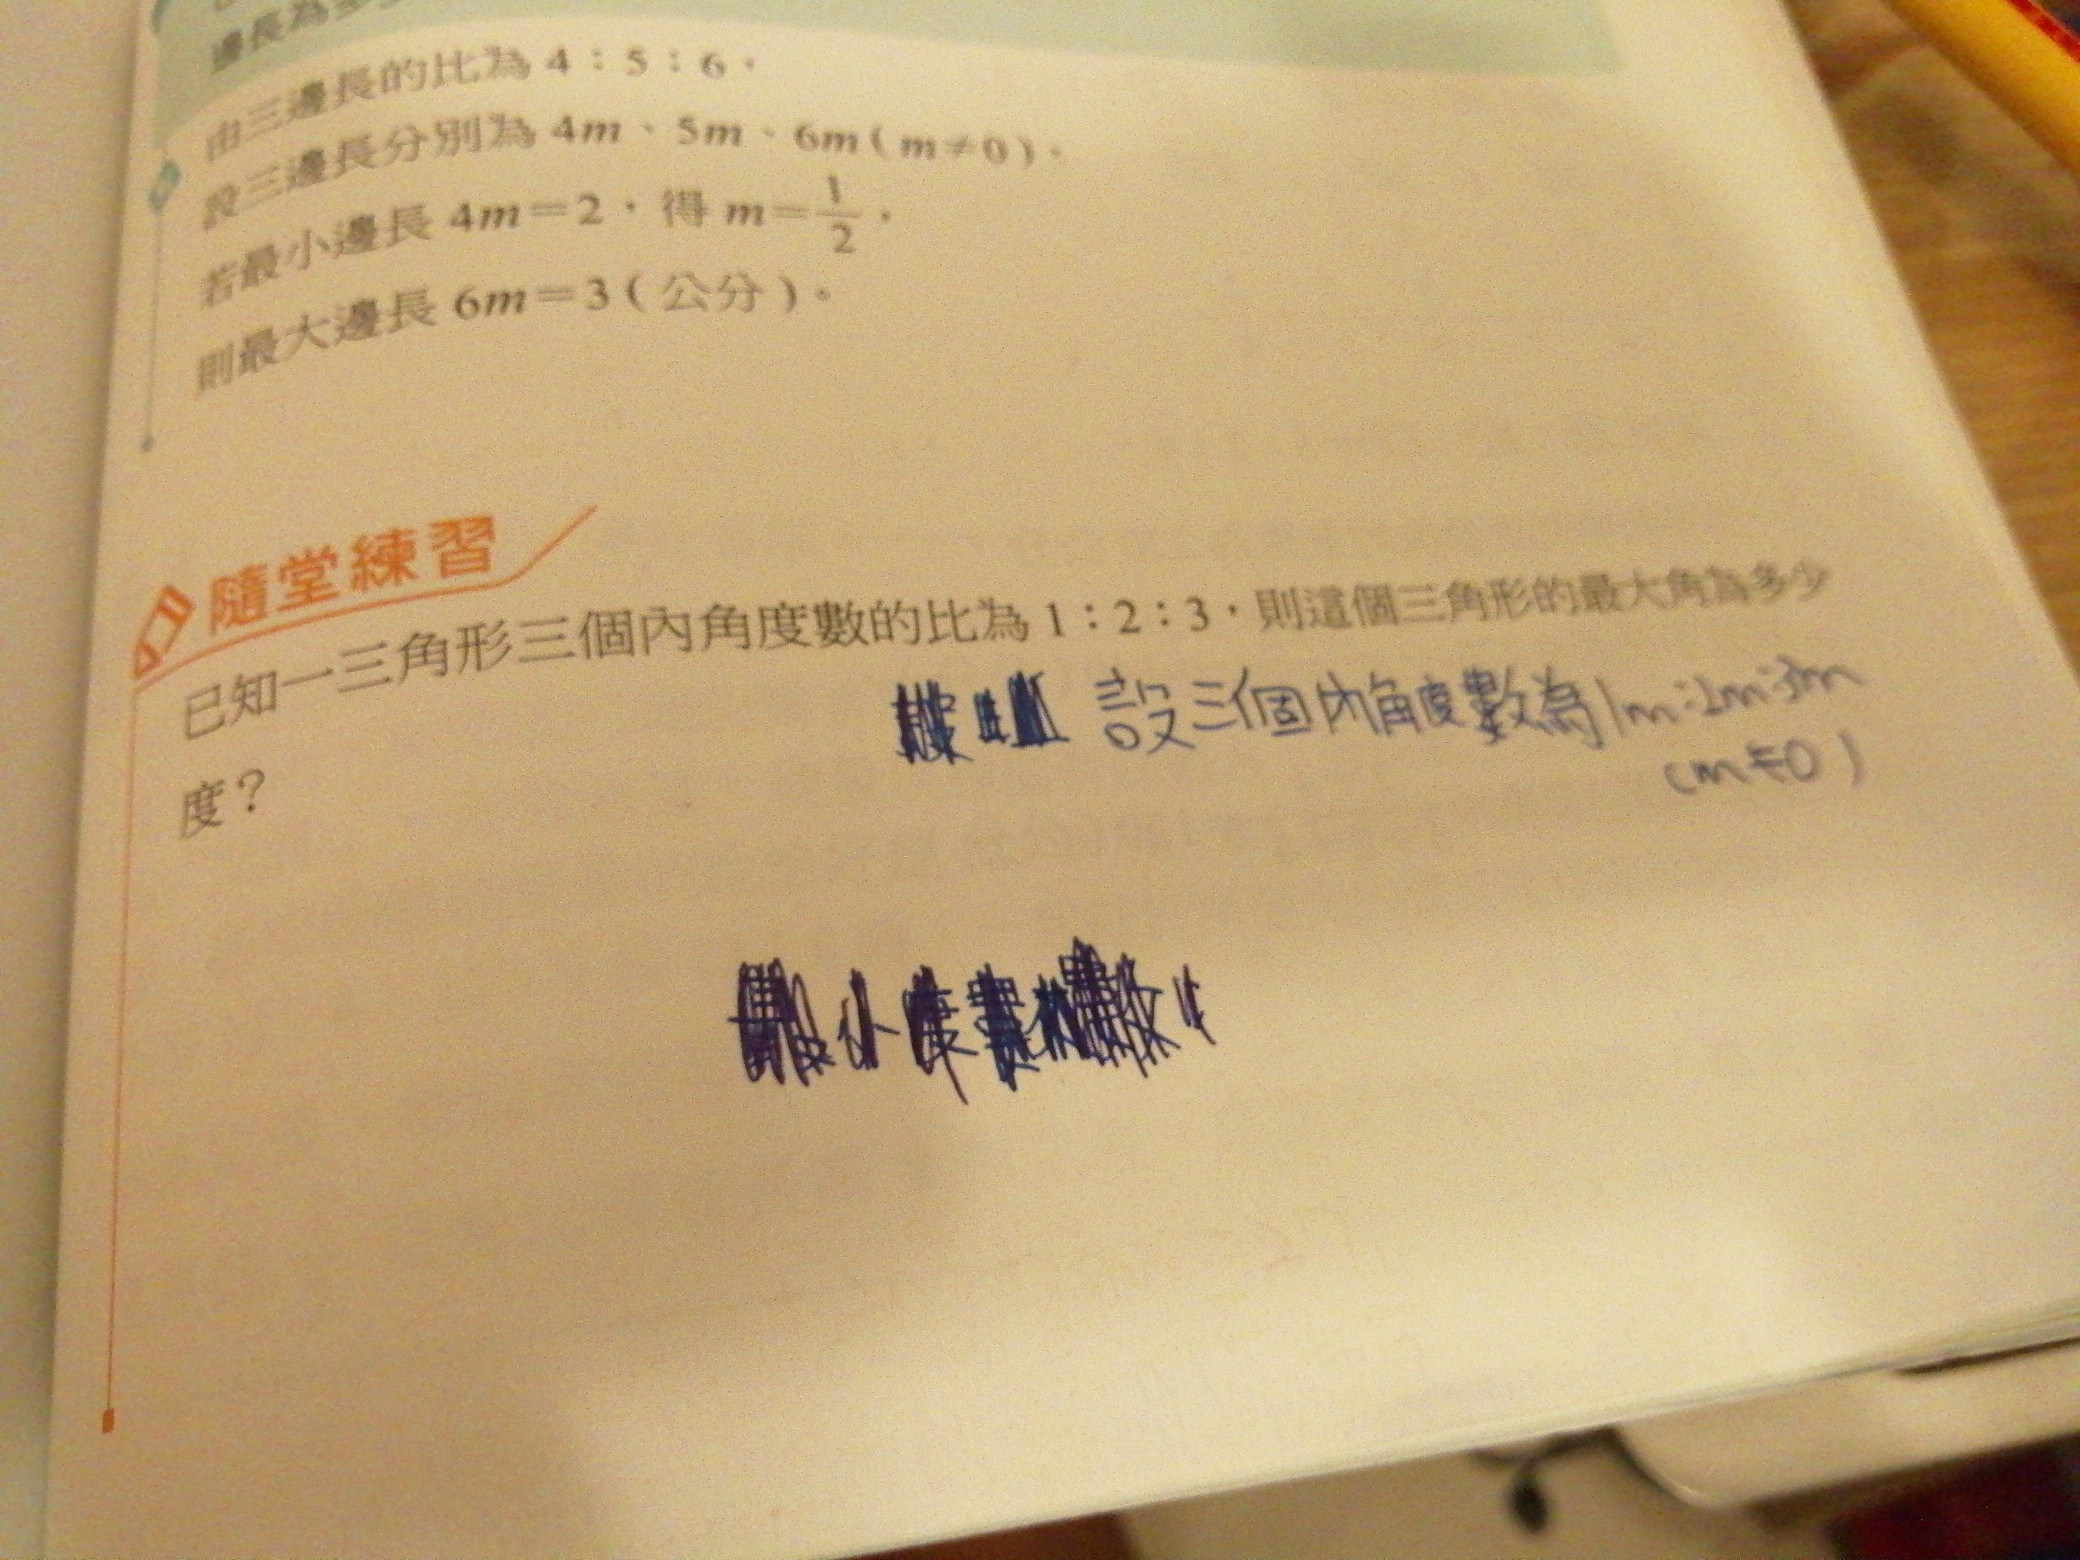 邊長為多少
由三邊長的比為 4：5：6，
設三邊長分別為 4m、5m、6m（m≠0）。
若最小邊長 4m＝2，得 m＝1/2，
則最大邊長 6m＝3（公分）。
隨堂練習
已知一三角形三個內角度數的比為 1：2：3，則這個三角形的最大角為多少
度？
設三個內角度數為1m:2m:3m
(m≠0)